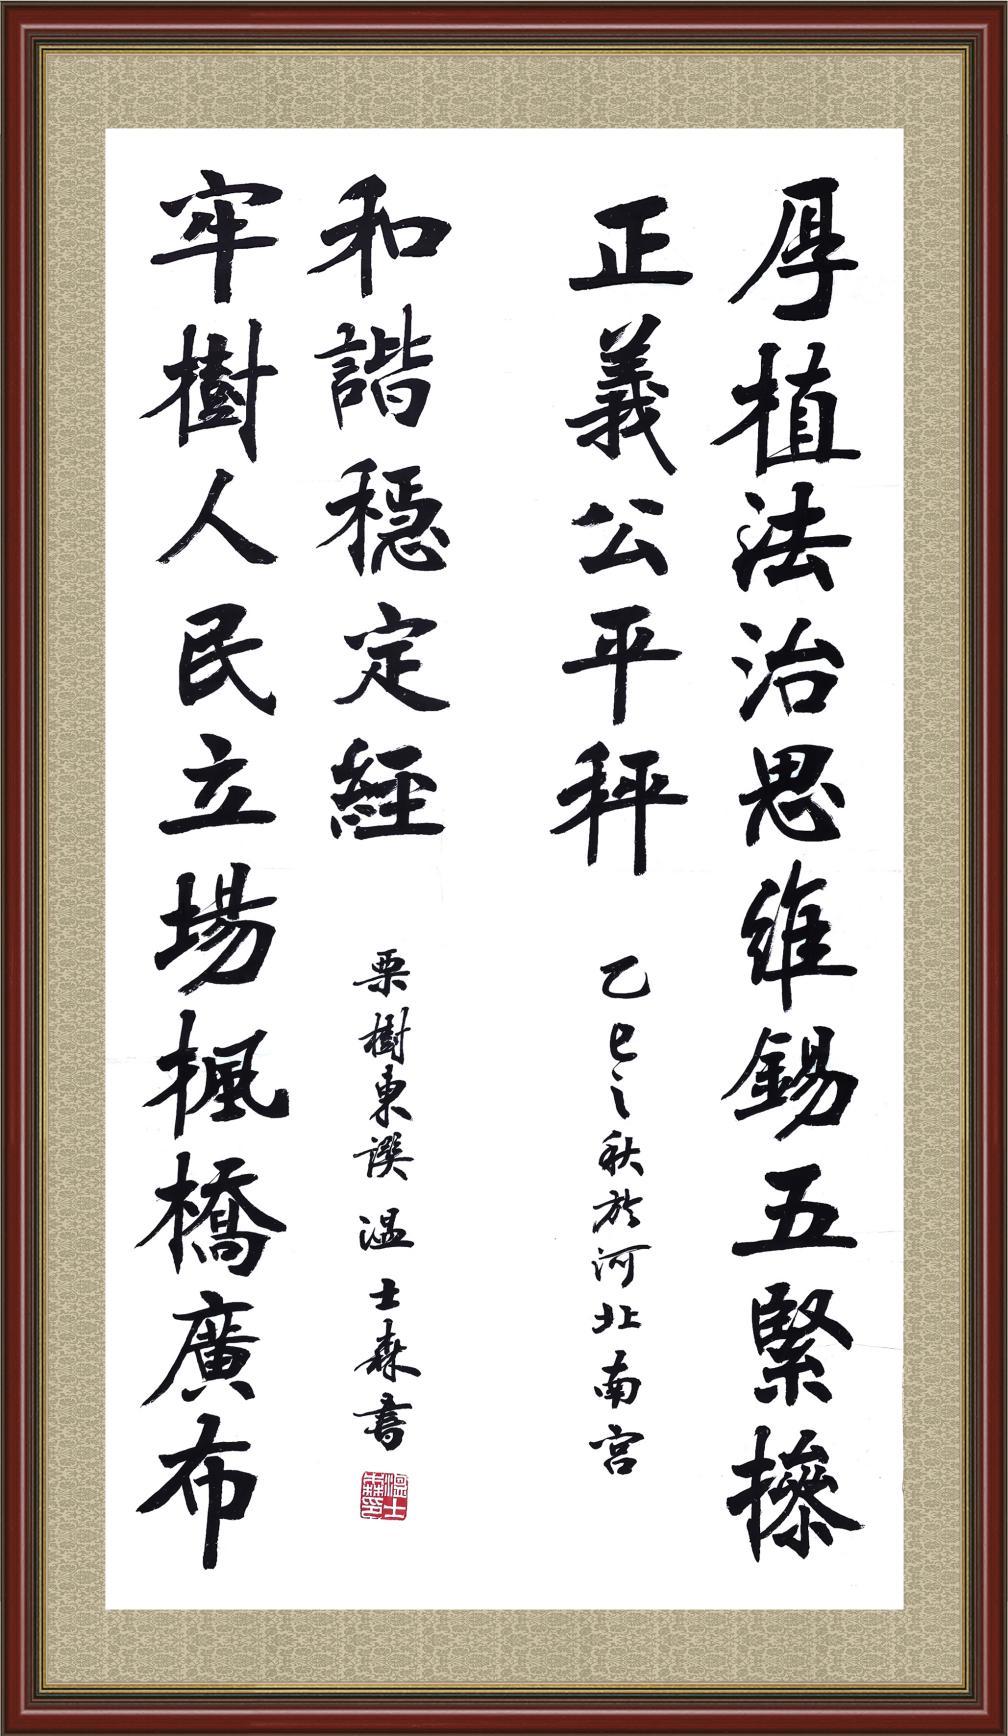 厚植法治思維錫五緊操
正義公平秤
乙巳之秋於河北南宮
牢樹人民立場楓橋廣布
和諧穩定經
栗樹東撰 溫士森書
溫士森印